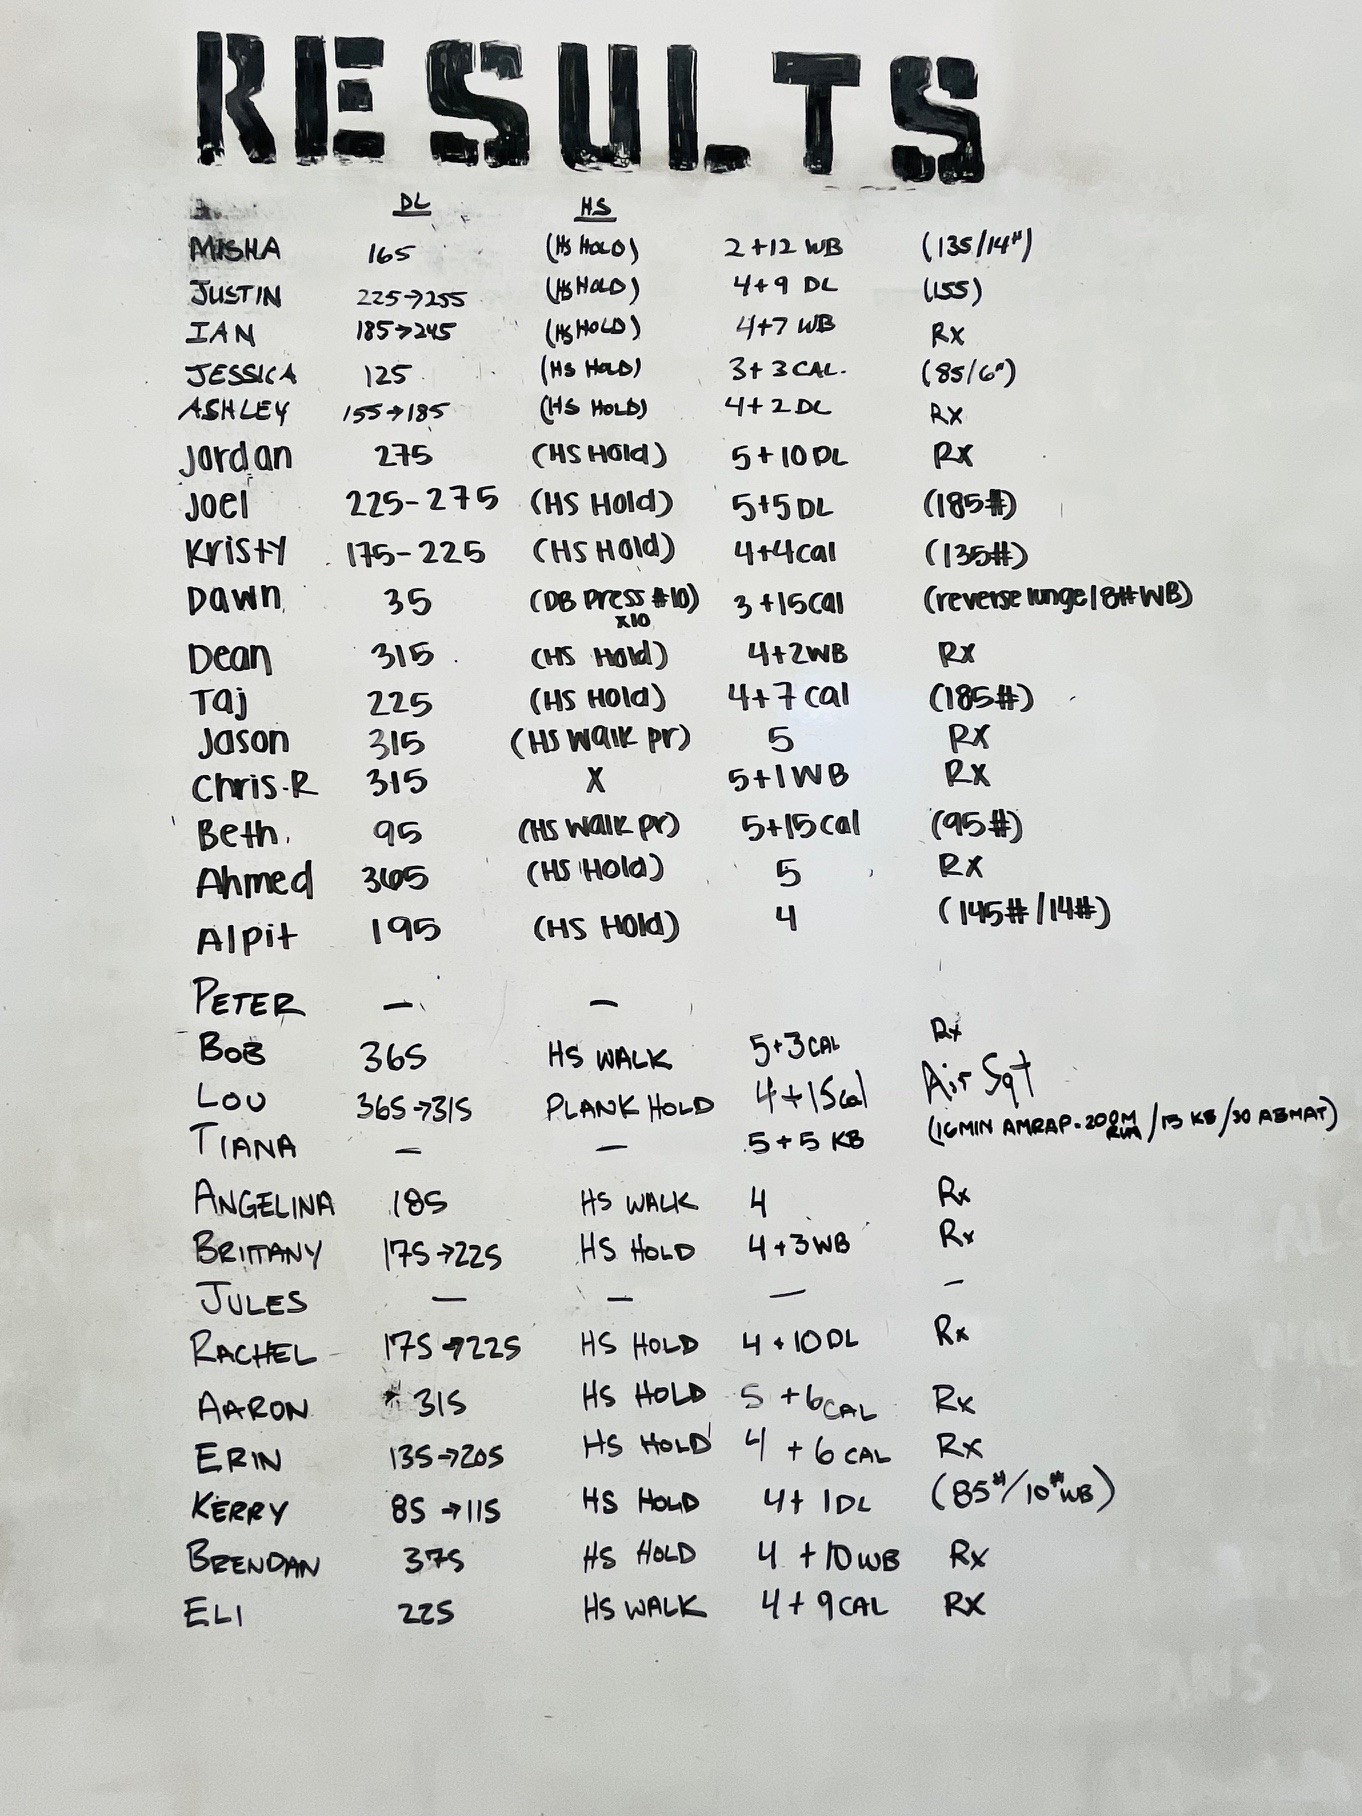 RESULTS
DL HS
MISHA 165 (HS HOLD) 2+12 WB (135/14#)
JUSTIN 225→255 (HS HOLD) 4+9 DL (155)
IAN 185→245 (HS HOLD) 4+7 WB Rx
JESSICA 125 (HS HOLD) 3+3 CAL. (85/6#)
ASHLEY 155→185 (HS HOLD) 4+2 DL Rx
Jordan 275 (HS Hold) 5+10 DL Rx
Joel 225-275 (HS Hold) 5+5 DL (185#)
Kristy 175-225 (HS Hold) 4+4 cal (135#)
Dawn 35 (DB Press #10) x10 3+15 cal (reverse lunge/8# WB)
Dean 315 (HS Hold) 4+2WB Rx
Taj 225 (HS Hold) 4+7 cal (185#)
Jason 315 (HS Walk pr) 5 Rx
Chris.R 315 X 5+1WB Rx
Beth. 95 (HS Walk pr) 5+15 cal (95#)
Ahmed 365 (HS Hold) 5 Rx
Alpit 195 (HS Hold) 4 (145#/14#)
PETER — —
BOB 365 HS WALK 5+3 CAL Rx
LOU 365→315 PLANK HOLD 4+15 cal Air Sqt
TIANA — — 5+5 KB (16MIN AMRAP-200M RUN/15 KB/30 ABMAT)
ANGELINA 185 HS WALK 4 Rx
BRITTANY 175→225 HS HOLD 4+3WB Rx
JULES — — — —
RACHEL 175→225 HS HOLD 4+10DL Rx
AARON 315 HS HOLD 5+6 CAL Rx
ERIN 135→205 HS HOLD 4+6 CAL Rx
KERRY 85→115 HS HOLD 4+1DL (85#/10# WB)
BRENDAN 375 HS HOLD 4+10WB Rx
ELI 225 HS WALK 4+9CAL RX